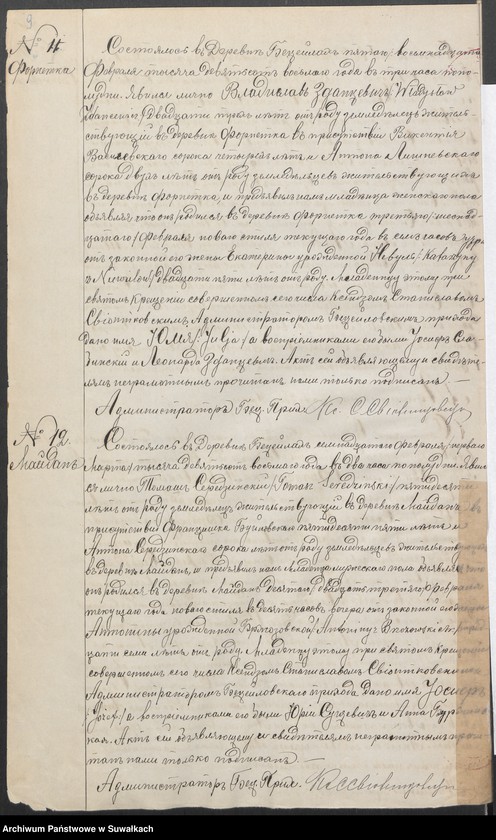 9
№ 11
Форнетка
Состоялось в деревне Бецейлах пятаго/восьмнадцатаго
Февраля тысяча девятьсот восьмаго года в три часа попо-
лудни. Явился лично Владислав Зданцевич/Władysław
Zdancewicz/ двадцати трех лет от роду земледелец житель-
ствующий в деревне Форнетка в присутствии Викентия
сорока четырех лет и Антона
сорока двух лет от роду земледельцев жительствующих
в деревне Форнетка, и предъявил нам младенца женскаго пола
объявляя что он родился в деревне Форнетка третьяго/шестнад-
цатаго/Февраля новаго стиля текущаго года в семь часов утра
от законной его жены Екатерины урожденной /Katarzyny
z / двадцати пяти лет от роду. Младенцу этому при
святом крещении совершенном сего числа Ксендзом Станиславом
Свіонтковским, Администратором Бецейловским прихода
дано имя Юлия/Julja/ а восприемниками его были Иосиф
и Леонарда Зданцевич. Акт сей объявляющему и свидете-
лям неграмотным прочитан нами только подписан. —
Администратор Бец. Прих. Кс. С. Свіонтковскій
№ 12.
Майдан
Состоялось в деревне Бецейлах семнадцатаго Февраля/перваго
Марта/тысяча девятьсот восьмаго года в два часа пополудни. Явил-
ся лично Томаш Серединский/Tomasz / пятидесяти
лет от роду земледелец жительствующий в деревне Майдан в
присутствии Францишка пятидесяти пяти лет и
Антона Серединскаго сорока лет от роду земледельцев жительств
в деревне Майдан, и предъявил нам младенца мужескаго пола объявляя
что он родился в деревне Майдан десятаго/двадцать третьяго Февраля
текущаго года новаго стиля в десять часов вечера от законной его жены
Антонины урожденной /Antoniny
цати семи лет от роду. Младенцу этому при святом крещении
совершенном сего числа Ксендзом Станиславом Свіонтковским
Администратором Бецейловского прихода дано имя Иосиф
Józef/ а восприемниками его были Юрий и Анна
кая. Акт сей объявляющему и свидетелям неграмотным прочи-
тан нами только подписан —
Администратор Бец. Прих. Кс С Свіонтковскій
Archiwum Państwowe w Suwałkach